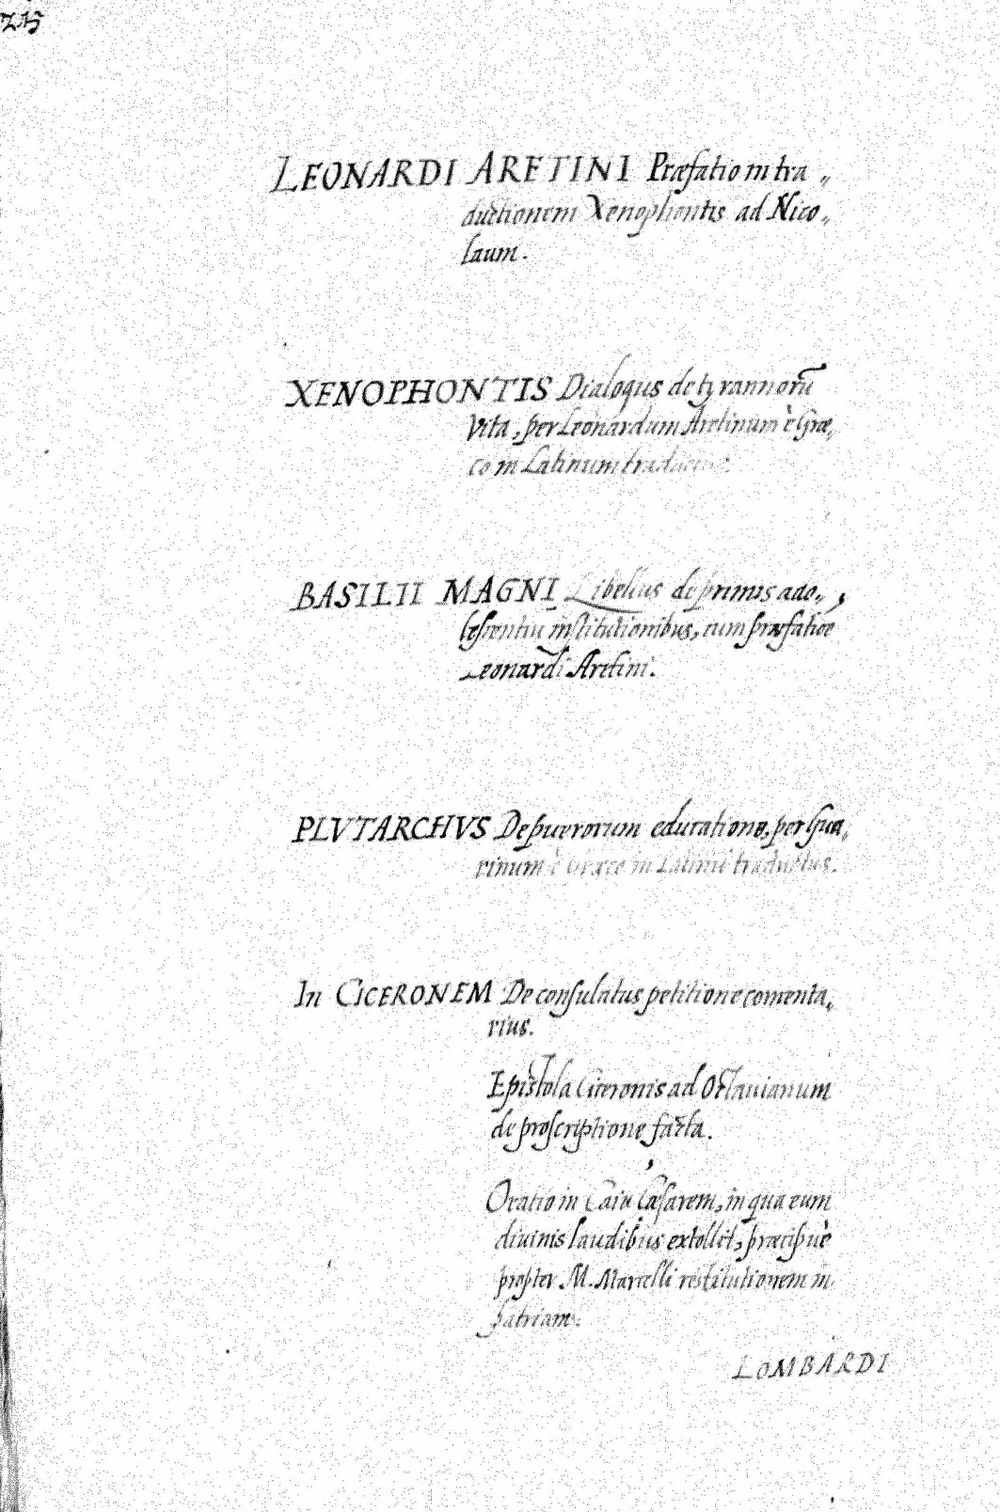 215
LEONARDI ARETINI Præfatio in tra„
ductionem Xenophontis ad Nico„
laum.
XENOPHONTIS Dialogus de tyrannorū
vita, per Leonardum Aretinum è Græ„
co in Latinum
BASILII MAGNI Libellus de primis ado„
lescentiū institutionibus, cum præfatiōe
Leonardi Aretini.
PLVTARCHVS De puerorum educatione, per Gua„
rinum è Græce in Latinū traductus.
In CICERONEM De consulatus petitione comenta„
rius.
Epistola Ciceronis ad Octauianum
de proscriptione facta.
Oratio in Caiū Cæsarem, in qua eum
diuinis laudibus extollit, præcipuè
propter M. Marcelli restitutionem in
patriam.
LOMBARDI